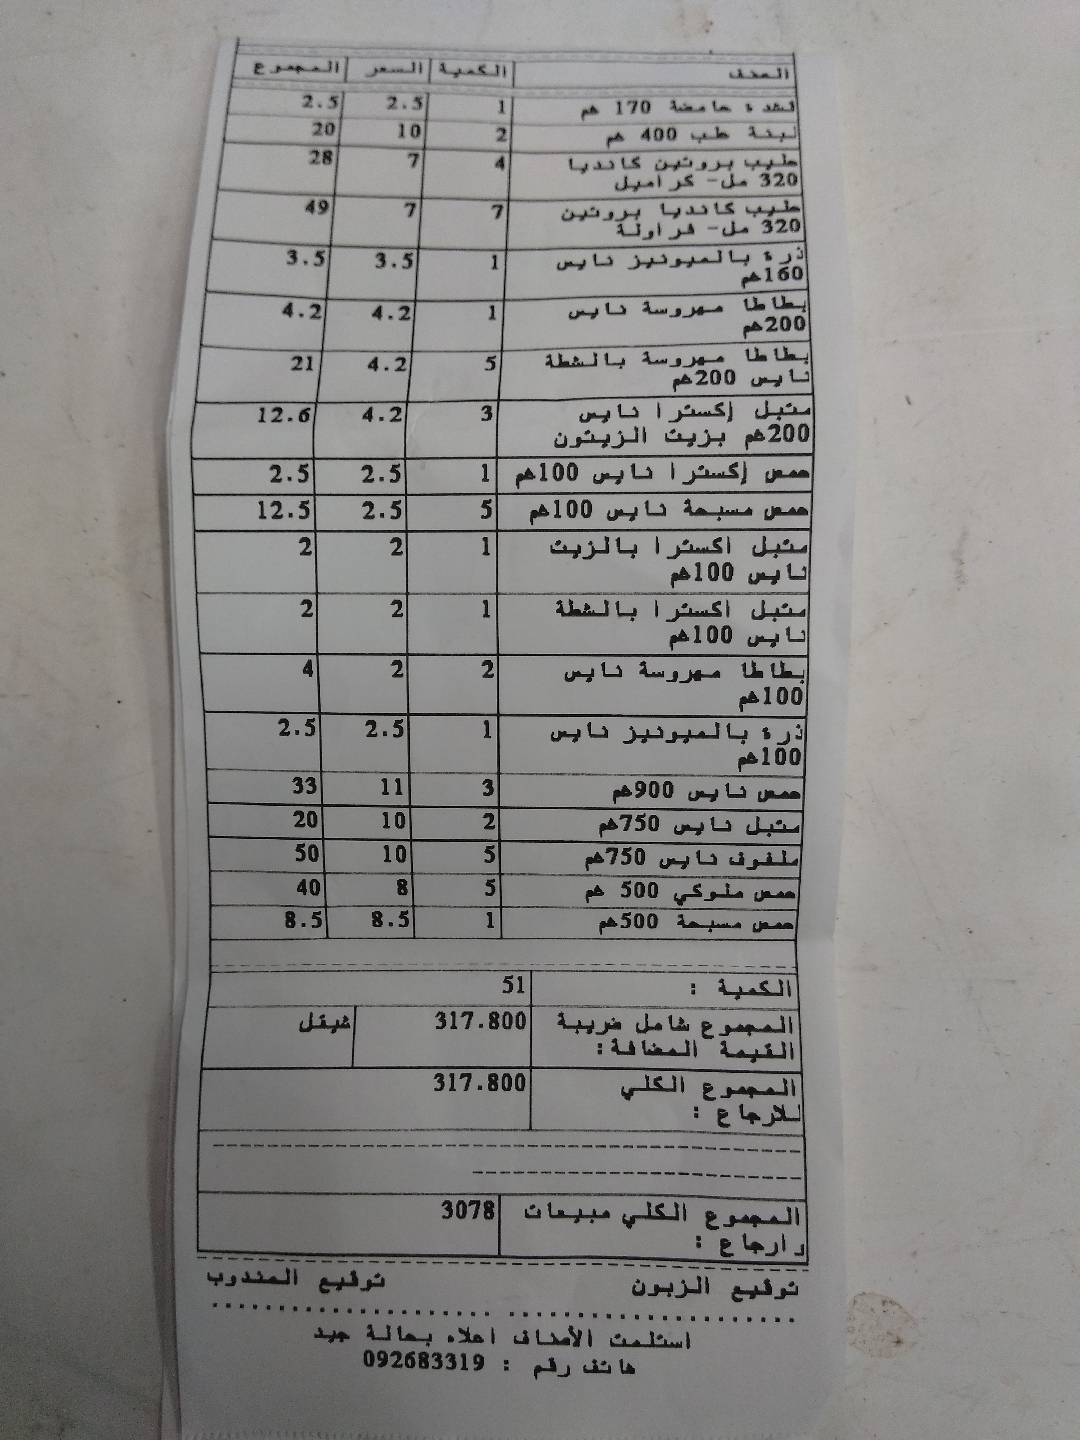 الصنف الكمية السعر المجموع
قشدة حامضة 170 غم 1 2.5 2.5
لبنة طب 400 غم 2 10 20
حليب بروتين كانديا 4 7 28
320 مل- كراميل
حليب كانديا بروتين 7 7 49
320 مل- فراولة
ذرة بالميونيز نايس 1 3.5 3.5
160غم
بطاطا مهروسة نايس 1 4.2 4.2
200غم
بطاطا مهروسة بالشطة 5 4.2 21
نايس 200غم
متبل إكسترا نايس 3 4.2 12.6
200غم بزيت الزيتون
حمص إكسترا نايس 100غم 1 2.5 2.5
حمص مسبحة نايس 100غم 5 2.5 12.5
متبل اكسترا بالزيت 1 2 2
نايس 100غم
متبل اكسترا بالشطة 1 2 2
نايس 100غم
بطاطا مهروسة نايس 2 2 4
100غم
ذرة بالميونيز نايس 1 2.5 2.5
100غم
حمص نايس 900غم 3 11 33
متبل نايس 750غم 2 10 20
ملفوف نايس 750غم 5 10 50
حمص ملوكي 500 غم 5 8 40
حمص مسبحة 500غم 1 8.5 8.5
الكمية : 51
المجموع شامل ضريبة 317.800 شيقل
القيمة المضافة:
المجموع الكلي 317.800
للارجاع :
المجموع الكلي مبيعات 3078
وارجاع :
توقيع الزبون توقيع المندوب
استلمت الأصناف اعلاه بحالة جيد
هاتف رقم : 092683319